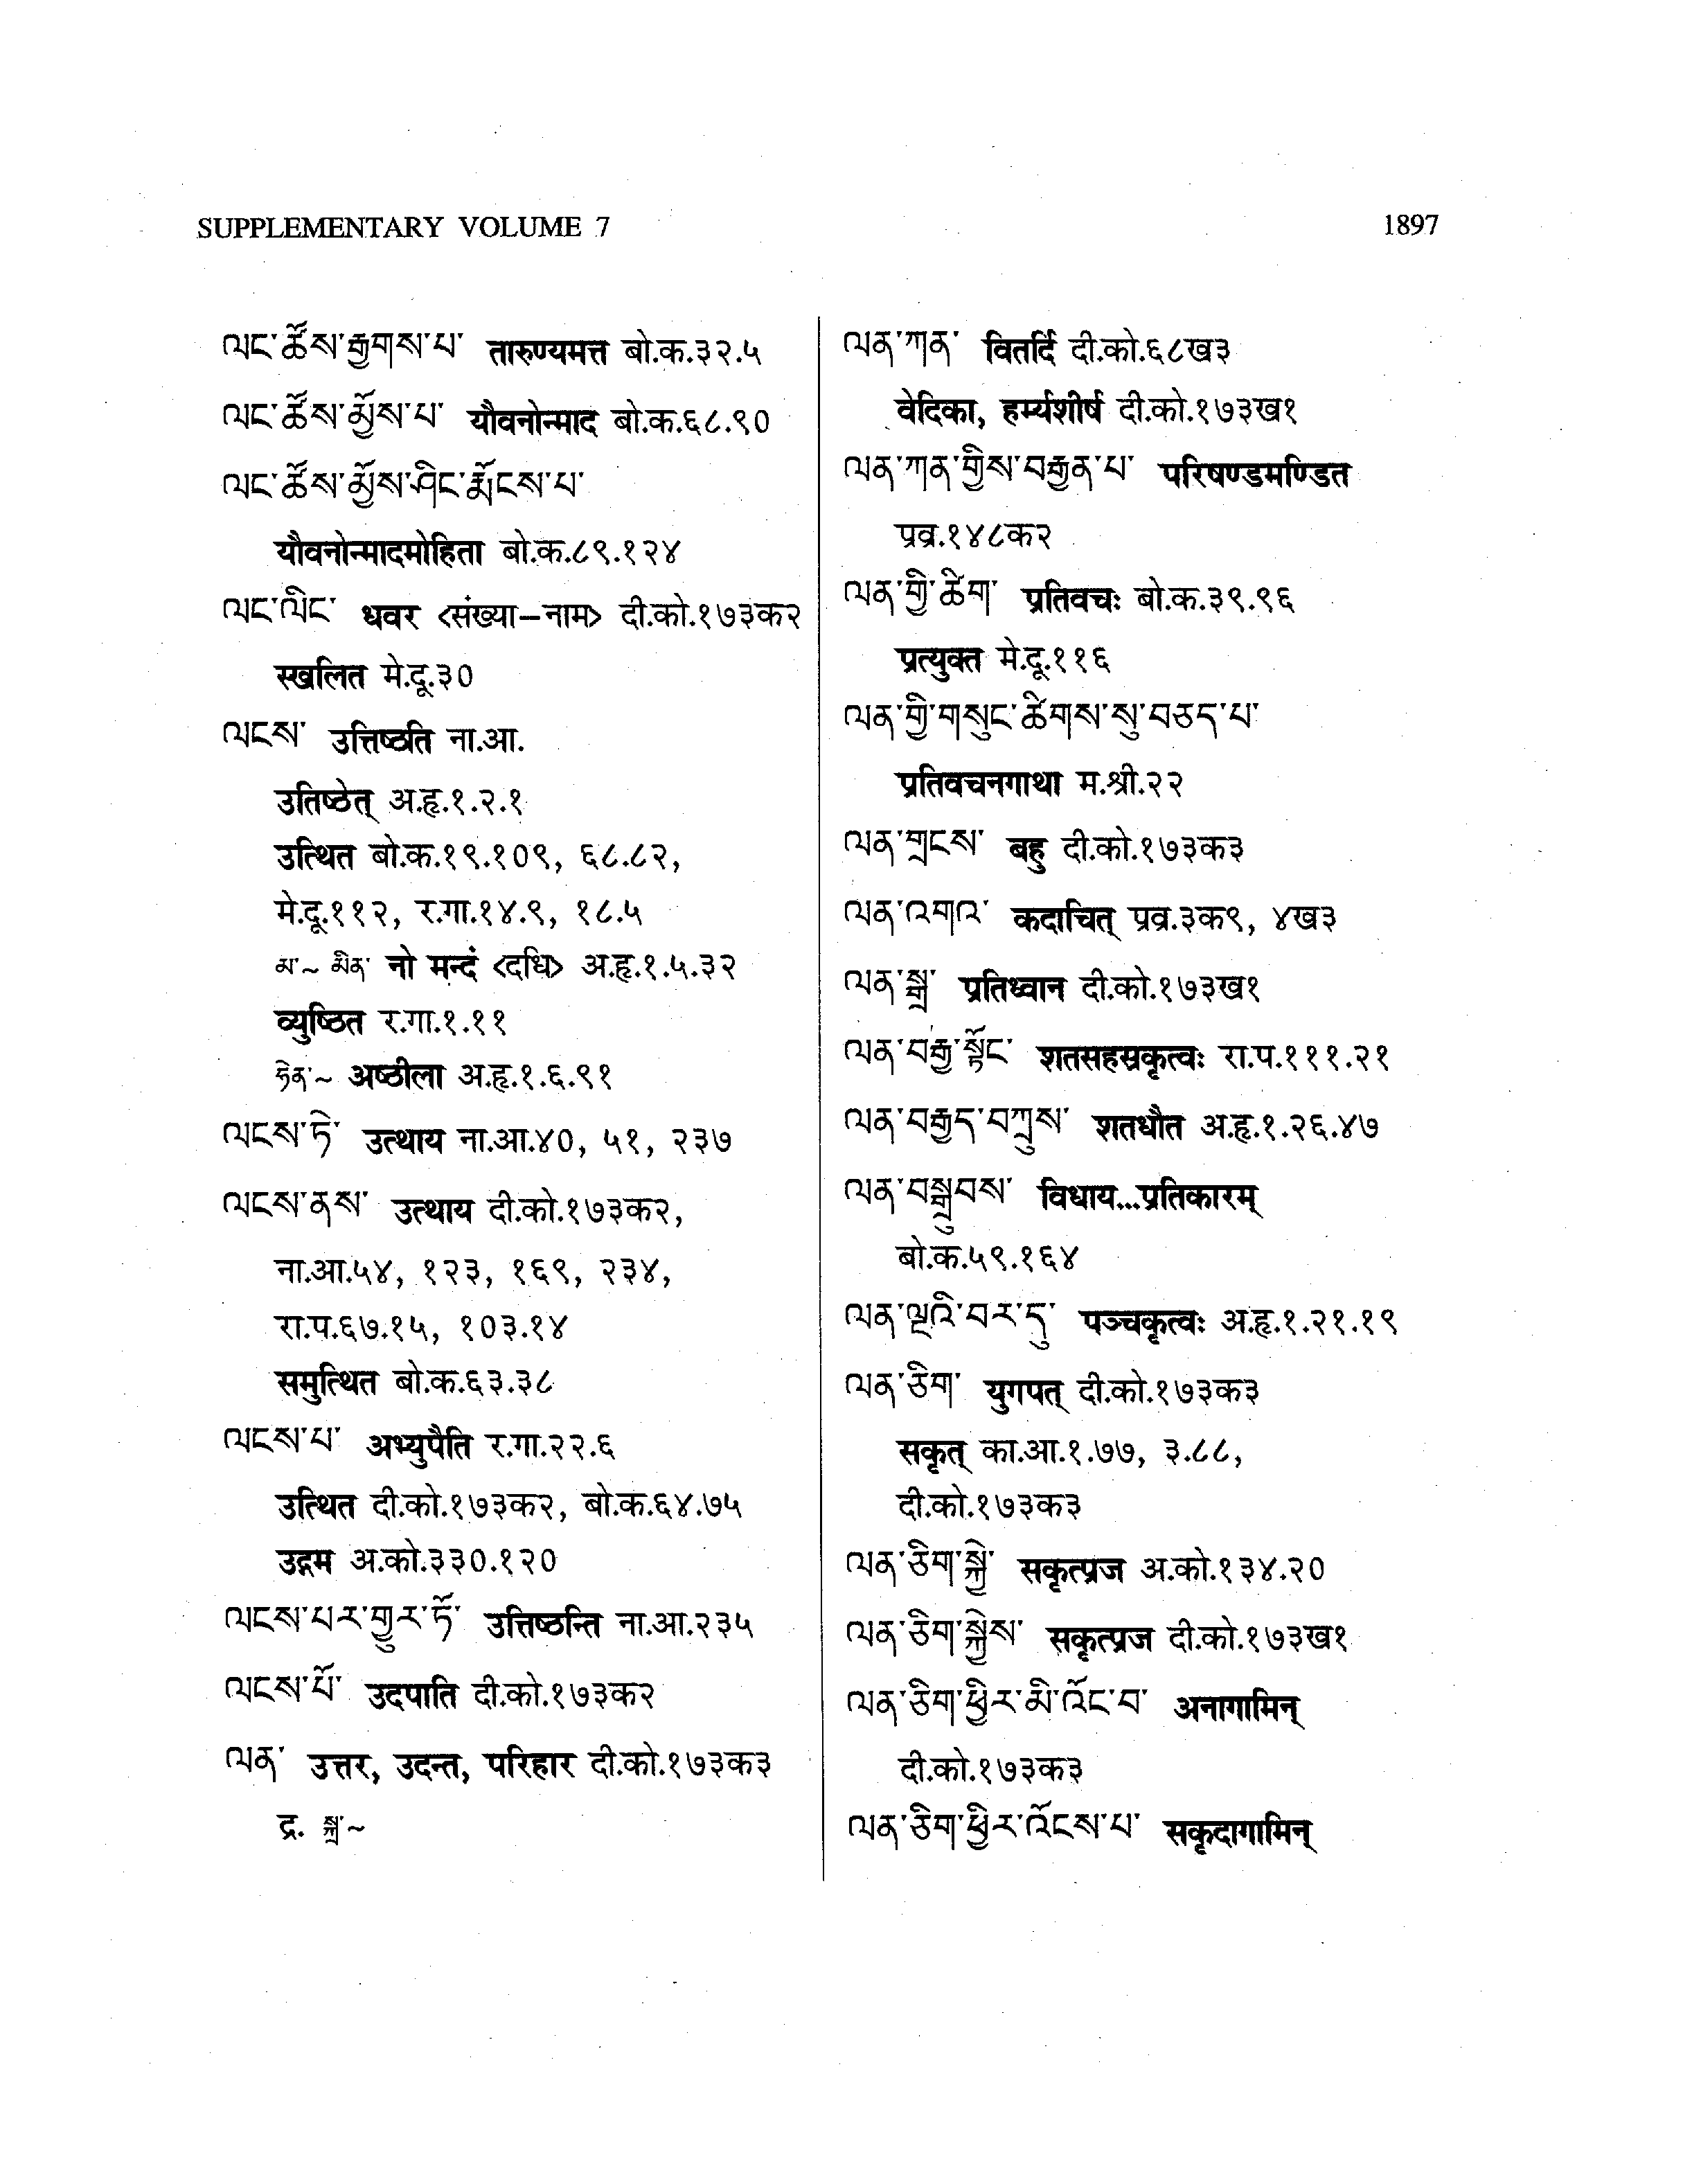 SUPPLEMENTARY VOLUME 7 1897
ལང་ཚོས་རྒྱགས་པ་ तारुण्यमत्त बो.क.३२.५
ལང་ཚོས་མྱོས་པ་ यौवनोन्माद बो.क.६८.९०
ལང་ཚོས་མྱོས་ཤིང་རྨོངས་པ་
यौवनोन्मादमोहिता बो.क.८९.१२४
ལང་ལིང་ धवर <संख्या–नाम> दी.को.१७३क२
स्खलित मे.दू.३०
ལངས་ उत्तिष्ठति ना.आ.
उतिष्ठेत् अ.हृ.१.२.१
उत्थित बो.क.१९.१०९, ६८.८२,
मे.दू.११२, र.गा.१४.९, १८.५
མ་~ མིན་ नो मन्दं <दधि> अ.हृ.१.५.३२
व्युष्ठित र.गा.१.११
ཧེན་~ अष्ठीला अ.हृ.१.६.९१
ལངས་ཏེ་ उत्थाय ना.आ.४०, ५१, २३७
ལངས་ནས་ उत्थाय दी.को.१७३क२,
ना.आ.५४, १२३, १६९, २३४,
रा.प.६७.१५, १०३.१४
समुत्थित बो.क.६३.३८
ལངས་པ་ अभ्युपैति र.गा.२२.६
उत्थित दी.को.१७३क२, बो.क.६४.७५
उद्गम अ.को.३३०.१२०
ལངས་པར་གྱུར་ཏོ་ उत्तिष्ठन्ति ना.आ.२३५
ལངས་པོ་ उदपाति दी.को.१७३क२
ལན་ उत्तर, उदन्त, परिहार दी.को.१७३क३
द्र. སྐྲ་~
ལན་ཀན་ वितर्दि दी.को.६८ख३
वेदिका, हर्म्यशीर्ष दी.को.१७३ख१
ལན་ཀན་གྱིས་བརྒྱན་པ་ परिषण्डमण्डित
प्रव्र.१४८क२
ལན་གྱི་ཚིག་ प्रतिवचः बो.क.३९.९६
प्रत्युक्त मे.दू.११६
ལན་གྱི་གསུང་ཚིགས་སུ་བཅད་པ་
प्रतिवचनगाथा म.श्री.२२
ལན་གྲངས་ बहु दी.को.१७३क३
ལན་འགའ་ कदाचित् प्रव्र.३क९, ४ख३
ལན་སྒྲ་ प्रतिध्वान दी.को.१७३ख१
ལན་བརྒྱ་སྟོང་ शतसहस्रकृत्वः रा.प.१११.२१
ལན་བརྒྱད་བཀྲུས་ शतधौत अ.हृ.१.२६.४७
ལན་བསྒྲུབས་ विधाय...प्रतिकारम्
बो.क.५९.१६४
ལན་ལྔའི་བར་དུ་ पञ्चकृत्वः अ.हृ.१.२१.१९
ལན་ཅིག་ युगपत् दी.को.१७३क३
सकृत् का.आ.१.७७, ३.८८,
दी.को.१७३क३
ལན་ཅིག་སྐྱེ་ सकृत्प्रज अ.को.१३४.२०
ལན་ཅིག་སྐྱེས་ सकृत्प्रज दी.को.१७३ख१
ལན་ཅིག་ཕྱིར་མི་འོང་བ་ अनागामिन्
दी.को.१७३क३
ལན་ཅིག་ཕྱིར་འོངས་པ་ सकृदागामिन्